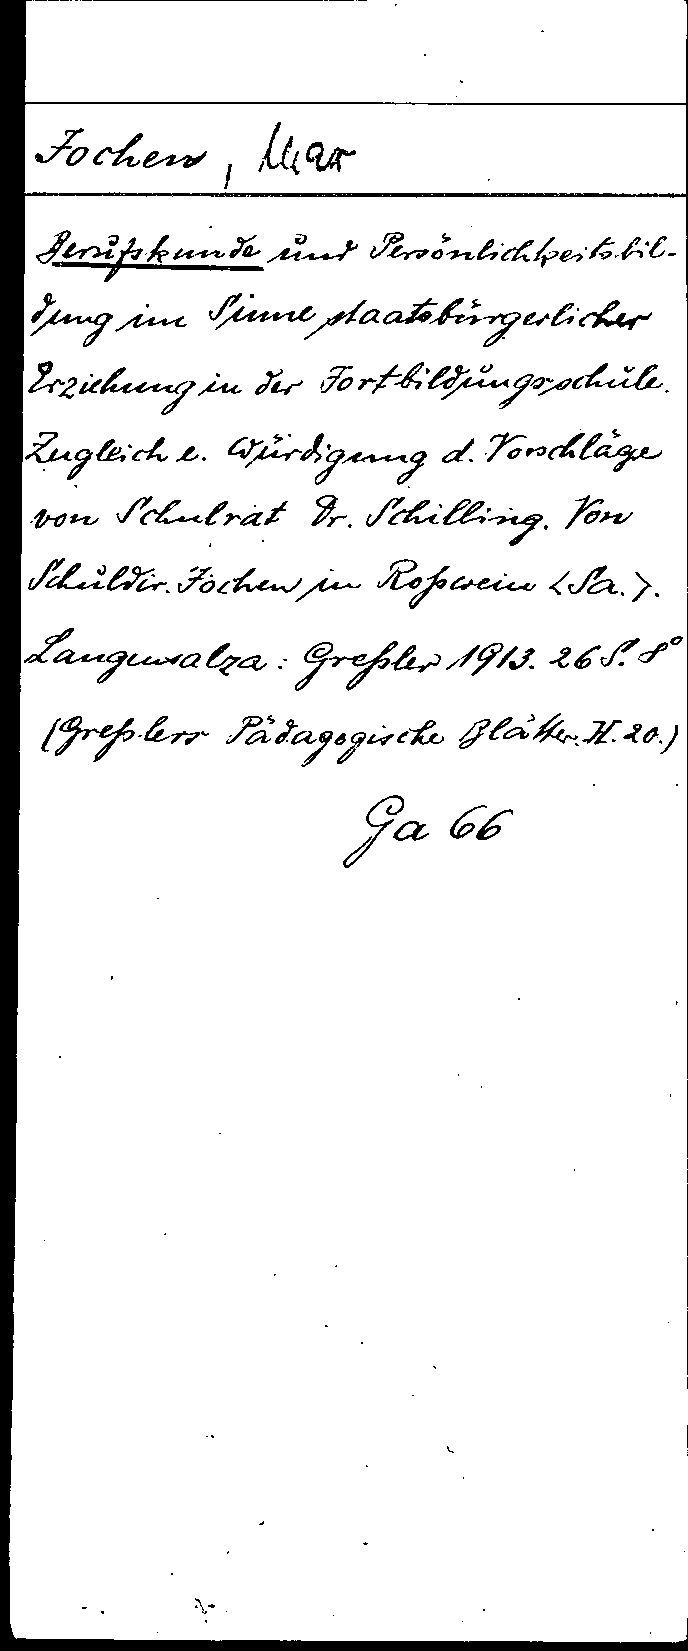 Jochen, Max
Berufskunde und Persönlichkeitsbil-
dung im Sinne staatsbürgerlicher
Erziehung in der Fortbildungsschule.
Zugleich e. Würdigung d. Vorschläge
von Schulrat Dr. Schilling. Von
Schuldir. Jochen in Roßwein <Sa.>.
Langensalza: Greßler 1913. 26 S. 8°
(Greßlers Pädagogische Blätter. H. 20.)
Ga 66